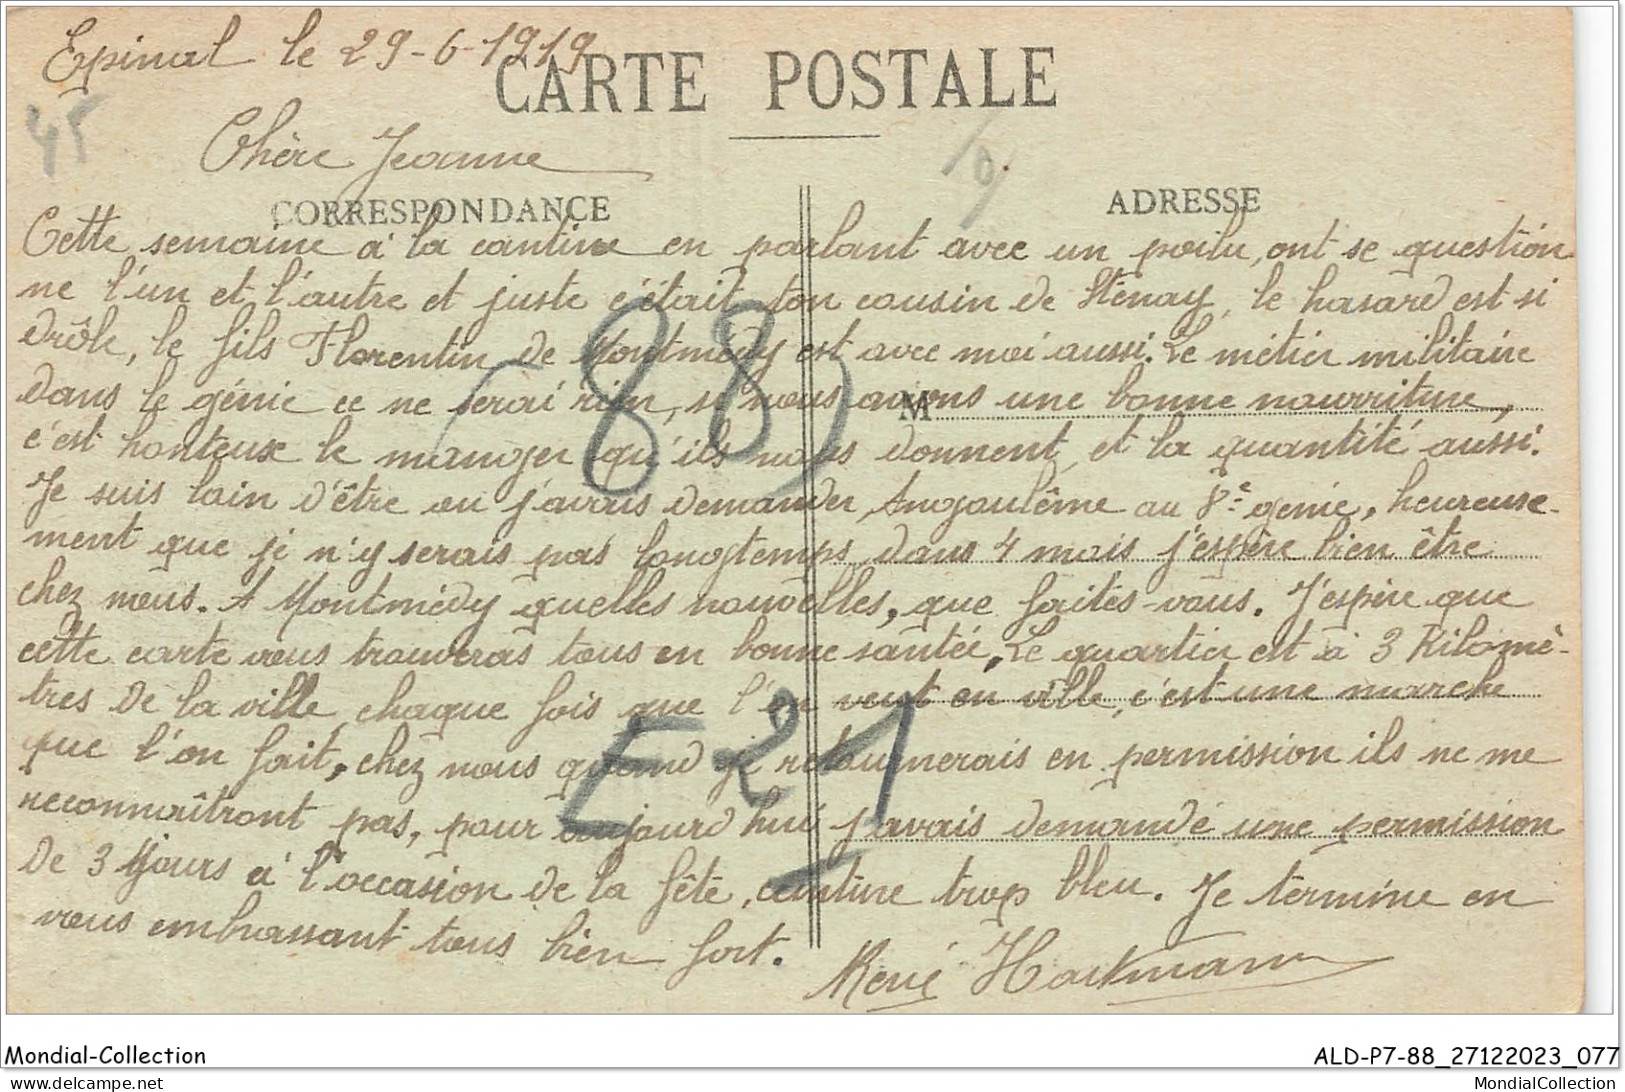 Epinal le 29-6-1919
CARTE POSTALE
45
Chère Jeanne
CORRESPONDANCE
ADRESSE
Cette semaine à la cantine en parlant avec un poilu, ont se question
ne l'un et l'autre et juste c'était ton cousin de Sténay, le hasard est si
drôle, le fils Florentin de Montmédy est avec moi aussi. Le métier militaire
dans le génie ce ne serai rien, si nous avions une bonne nourriture,
M
c'est honteux le manger qu'ils nous donnent et la quantité aussi.
Je suis loin d'être ou j'avais demander Angoulême au 8e génie, heureuse-
ment que je n'y serais pas longtemps, dans 4 mois j'espère bien être
chez nous. A Montmédy quelles nouvelles, que faites-vous. J'espère que
cette carte vous trouveras tous en bonne santée, Le quartier est à 3 Kilomè-
tres de la ville, chaque fois que l'on veut en ville, c'est une marche
que l'on fait, chez nous quand je retournerais en permission ils ne me
reconnaîtront pas, pour aujourd hui j'avais demandé une permission
de 3 jours à l'occasion de la fête, ceinture trop bleu. Je termine en
vous embrassant tous bien fort.
René Hartmann
(88)
E21
Mondial-Collection
ALD-P7-88_27122023_077
delcampe.net
MondialCollection